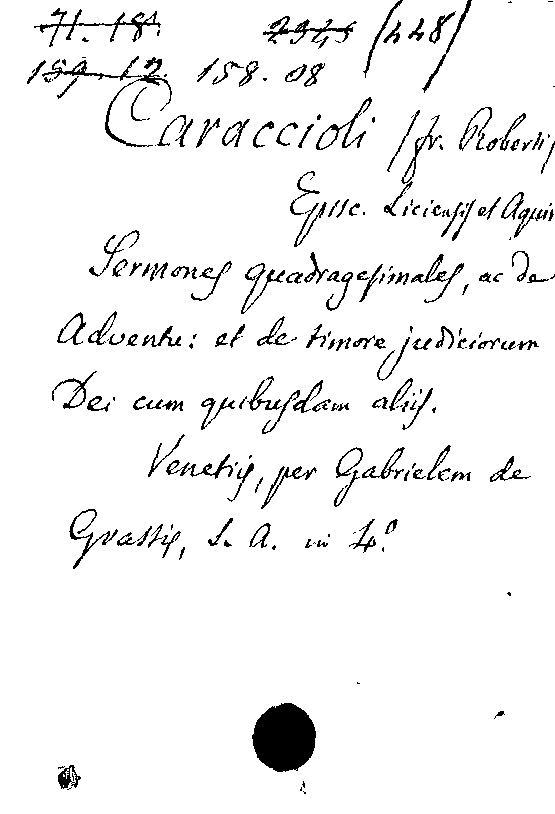 71. 18. 2345 (448)
159. 12. 158. 08
Caraccioli /fr. Roberti,
Episc. Liciensis et Aquin
Sermones quadragesimales, ac de
Adventu: et de timore judiciorum
Dei cum quibusdam aliis.
Venetiis, per Gabrielem de
Grassis, S. A. in 4.º